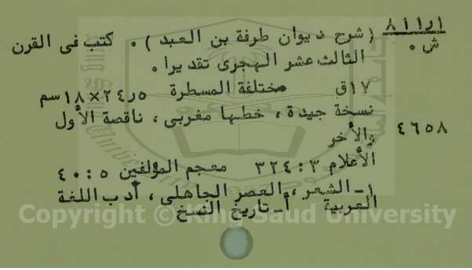 ٨١١ر١
ش٠
( شرح ديوان طرفة بن العبد ) ٠ كتب فى القرن
الثالث عشر الهجرى تقديرا ٠
١٧ق مختلفة المسطرة ٥ر٢٤×١٨سم
٤٦٥٨
نسخة جيدة ، خطها مغربى ، ناقصة الأول
والأخر
الأعلام ٣ : ٣٢٤ معجم المؤلفين ٥ : ٤٠
١- الشعر ، العصر الجاهلى ، أدب اللغة
العربية أ- تاريخ النسخ
Copyright © King Saud University